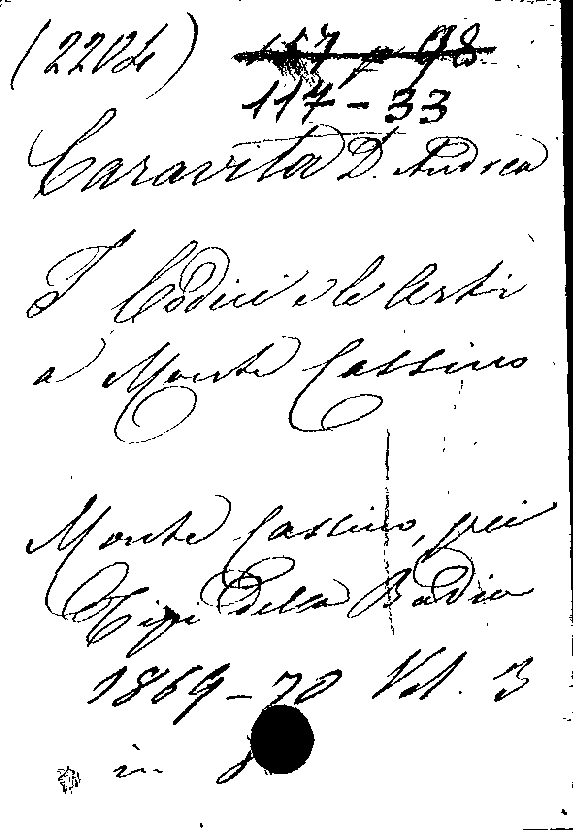 (2204)
117-33
Caravita D. Andrea
I Codici e le Arti
a Monte Cassino
Monte Cassino, pei
Tipi della Badia
1869-70 Vol. 3
in